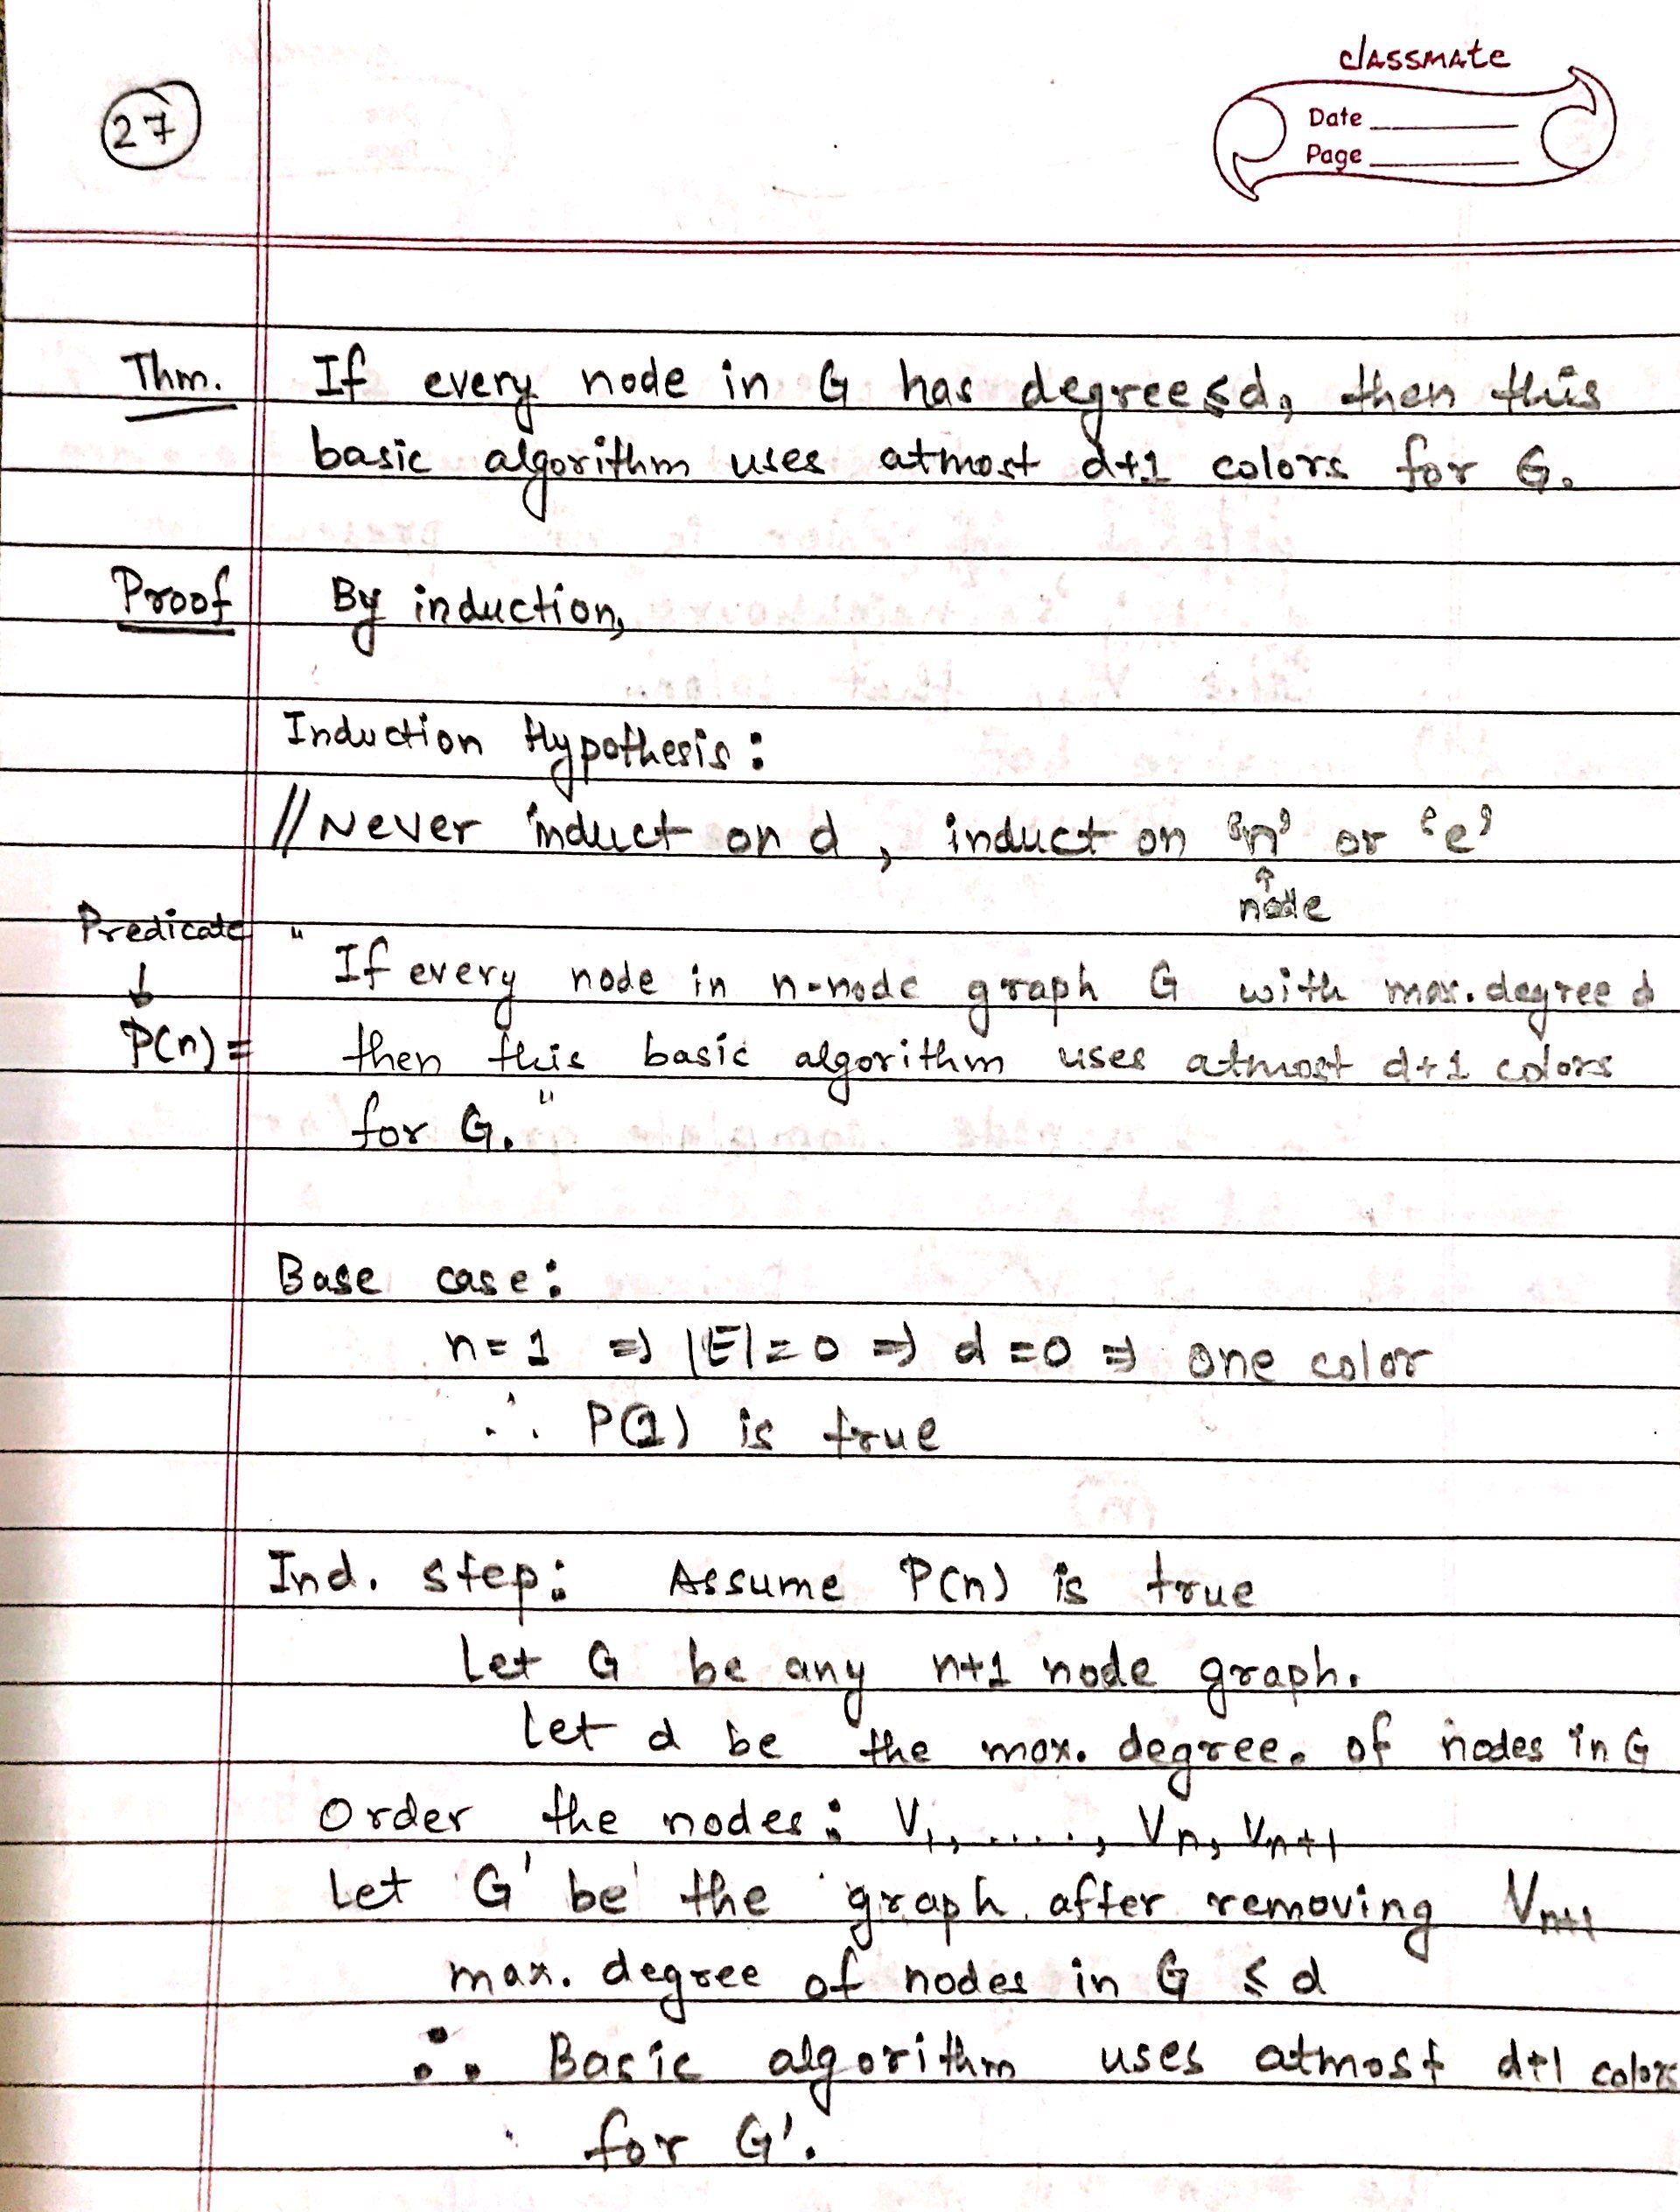 classmate
Date
Page
27
Thm. If every node in G has degree ≤ d, then this
basic algorithm uses atmost d+1 colors for G.
Proof By induction,
Induction Hypothesis:
// Never induct on d, induct on 'n' or 'e'
↑
node
Predicate
↓
P(n) =
" If every node in n-node graph G with max. degree d
then this basic algorithm uses atmost d+1 colors
for G. "
Base case:
n = 1 ⇒ |E| = 0 ⇒ d = 0 ⇒ one color
∴ P(1) is true
Ind. step: Assume P(n) is true
Let G be any n+1 node graph.
Let d be the max. degree. of nodes in G
Order the nodes: V1, ....., Vn, Vn+1
Let G' be the graph after removing Vn+1
max. degree of nodes in G ≤ d
∴ Basic algorithm uses atmost d+1 colors
for G'.